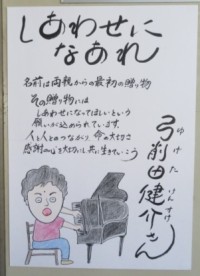 しあわせに
なあれ
名前は両親からの最初の贈り物
その贈り物には
しあわせになってほしいという
願いが込められています。
人と人とのつながり、命の大切さ
感謝の心を大切にし共に生きていこう
弓削田健介さん
ゆげた けんすけ